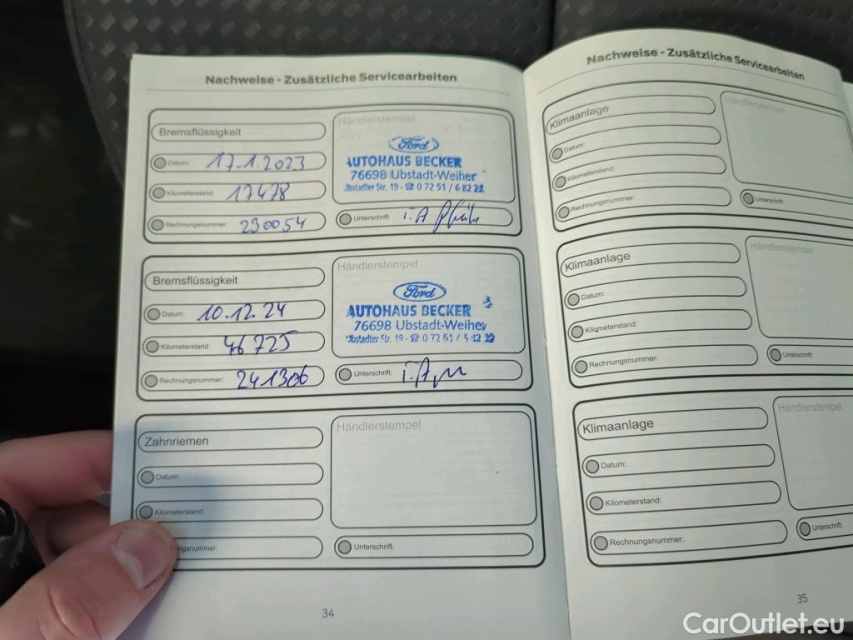 Nachweise - Zusätzliche Servicearbeiten
Bremsflüssigkeit
Datum: 17.1.2023
Kilometerstand: 17478
Rechnungsnummer: 230054
Händlerstempel
Ford
AUTOHAUS BECKER
76698 Ubstadt-Weiher
Ubstadter Str. 19 - ☎ 0 72 51 / 6 82 22
Unterschrift: i.A
Bremsflüssigkeit
Datum: 10.12.24
Kilometerstand: 46725
Rechnungsnummer: 241306
Händlerstempel
Ford
AUTOHAUS BECKER
76698 Ubstadt-Weiher
Ubstadter Str. 19 - ☎ 0 72 51 /
Unterschrift: i.A
Zahnriemen
Datum:
Kilometerstand:
ngsnummer:
Händlerstempel
Unterschrift:
34
Nachweise - Zusätzliche Servicearbeiten
Klimaanlage
Datum:
Kilometerstand:
Rechnungsnummer:
Händlerstempel
Unterschrift:
Klimaanlage
Datum:
Kilometerstand:
Rechnungsnummer:
Händlerstempel
Unterschrift:
Klimaanlage
Datum:
Kilometerstand:
Rechnungsnummer:
Händlerstempel
Unterschrift:
35
CarOutlet.eu